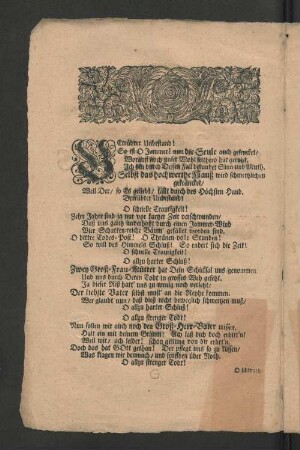 Betrübter Unbestand!
So ist O Jammer! nun die Seule auch gesuncken/
Worauf noch unser Wohl bißhero hat geruht.
Ich bin durch Dessen Fall
Selbst das hochwerthe Hauß wird schmertzlichen
gekräncket/
Weil Der/ so Es geliebt/ fällt durch des Höchsten Hand.
Betrübter Unbestand!
O schnelle Traurigkeit!
Zehn Jahre sind ja nur vor kurtzer Zeit verschwunden/
Daß uns gantz unverhofft durch einen Jammer-Wind
Vier Schatten-reiche Bäum' gefället worden sind.
O bitter Todes-Post! O Thränen volle Stunden!
So will des Himmels Schluß! So ändert sich die Zeit!
O schnelle Traurigkeit!
O allzu harter Schluß!
Zwey Groß-Frau-Mütter hat Dein Schicksal uns genommen
Und uns durch Deren Todt in gröstes Weh gesetzt.
Ja dieser Riß hatt' uns zu wenig noch verletzt:
Der liebste Vater selbst must' an die Reyhe kommen.
Wer glaubt nun/ daß dieß nicht beweglich schmertzen muß/
O allzu harter Schluß!
O allzu strenger Todt!
Nun sollen wir auch noch den Groß-Herr-Vater missen.
Halt ein mit deinem Grimm! Ach laß dich doch erbitt'n!
Weil wir/ ach leider! schon genung von dir erlitt'n.
Doch das hat GOtt gethan! Der pflegt uns so zu küssen/
Was klagen wir demnach/ und seuffzen über Noth.
O allzu strenger Todt!